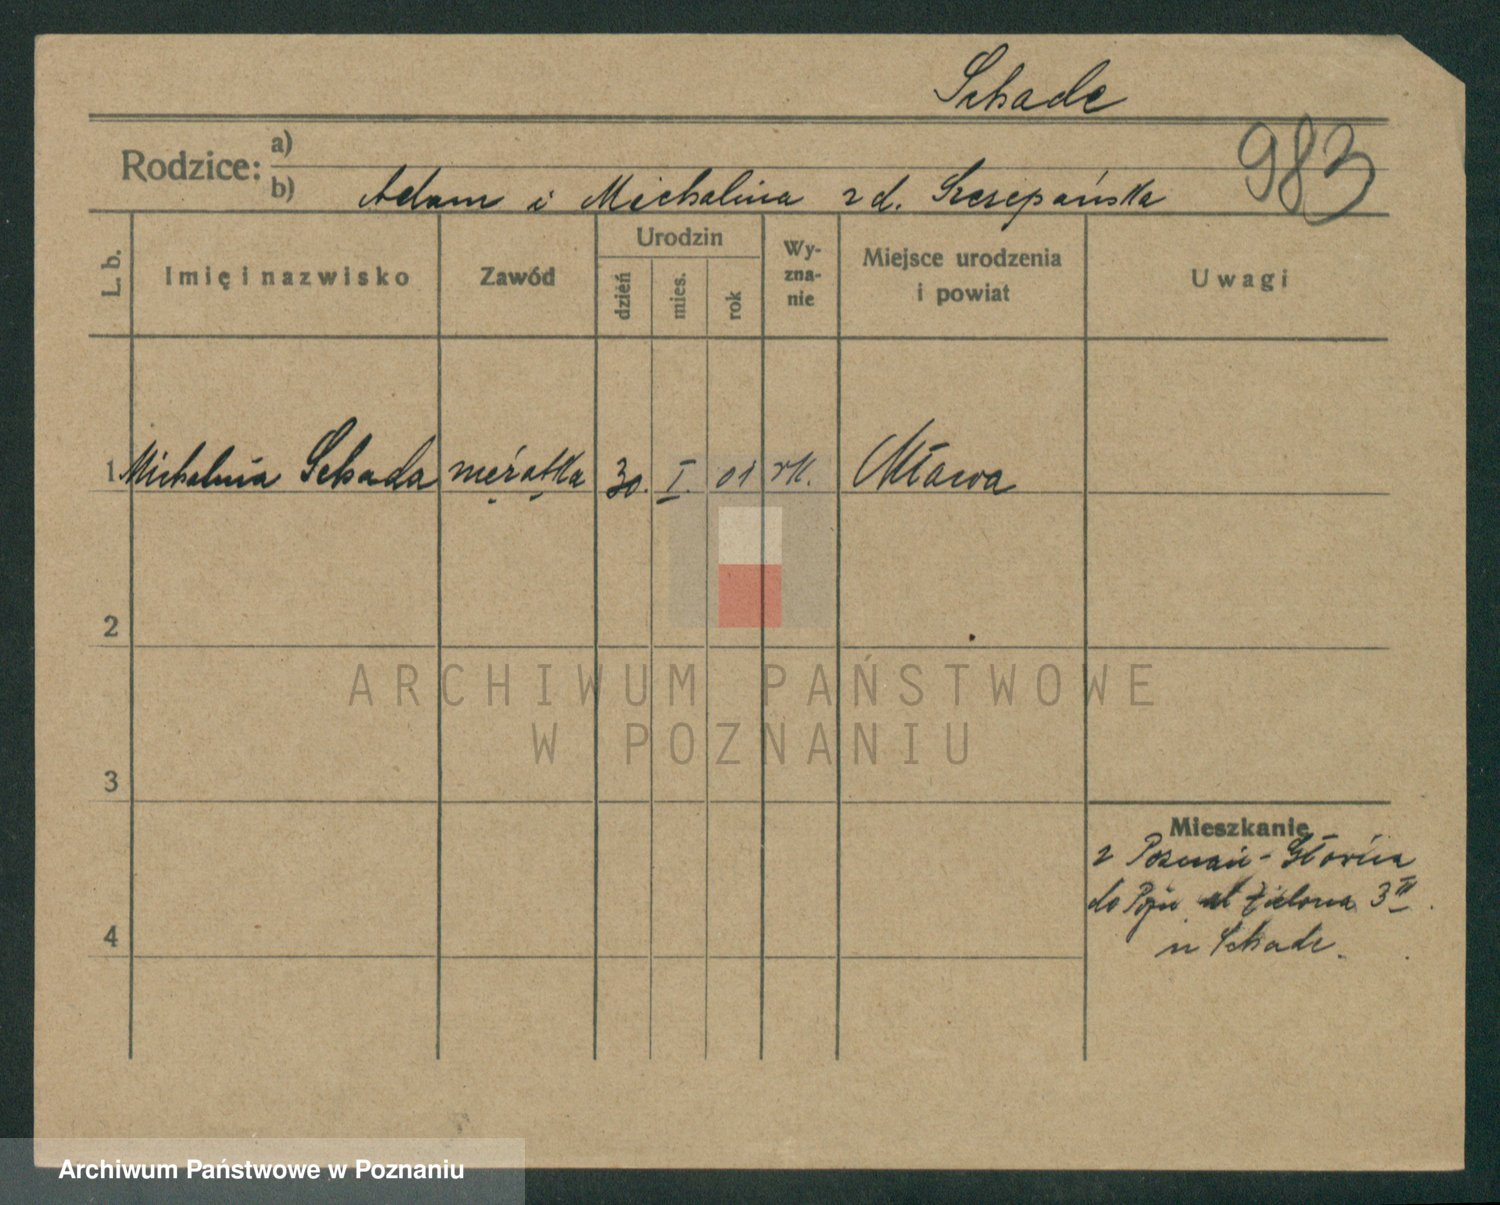 Schade
983
Rodzice: a)
b) Adam i Michalina z d. Szczepańska
L. b.
Imię i nazwisko
Zawód
Urodzin
dzień
mies.
rok
Wy-
zna-
nie
Miejsce urodzenia
i powiat
Uwagi
1 Michalina Schada mężatka 30. I. 01 rk. Mława
2
3
4
Mieszkanie
z Poznań - Główna
do Pozn. ul Zielona 3 III
u Schade.
ARCHIWUM PAŃSTWOWE
W POZNANIU
Archiwum Państwowe w Poznaniu